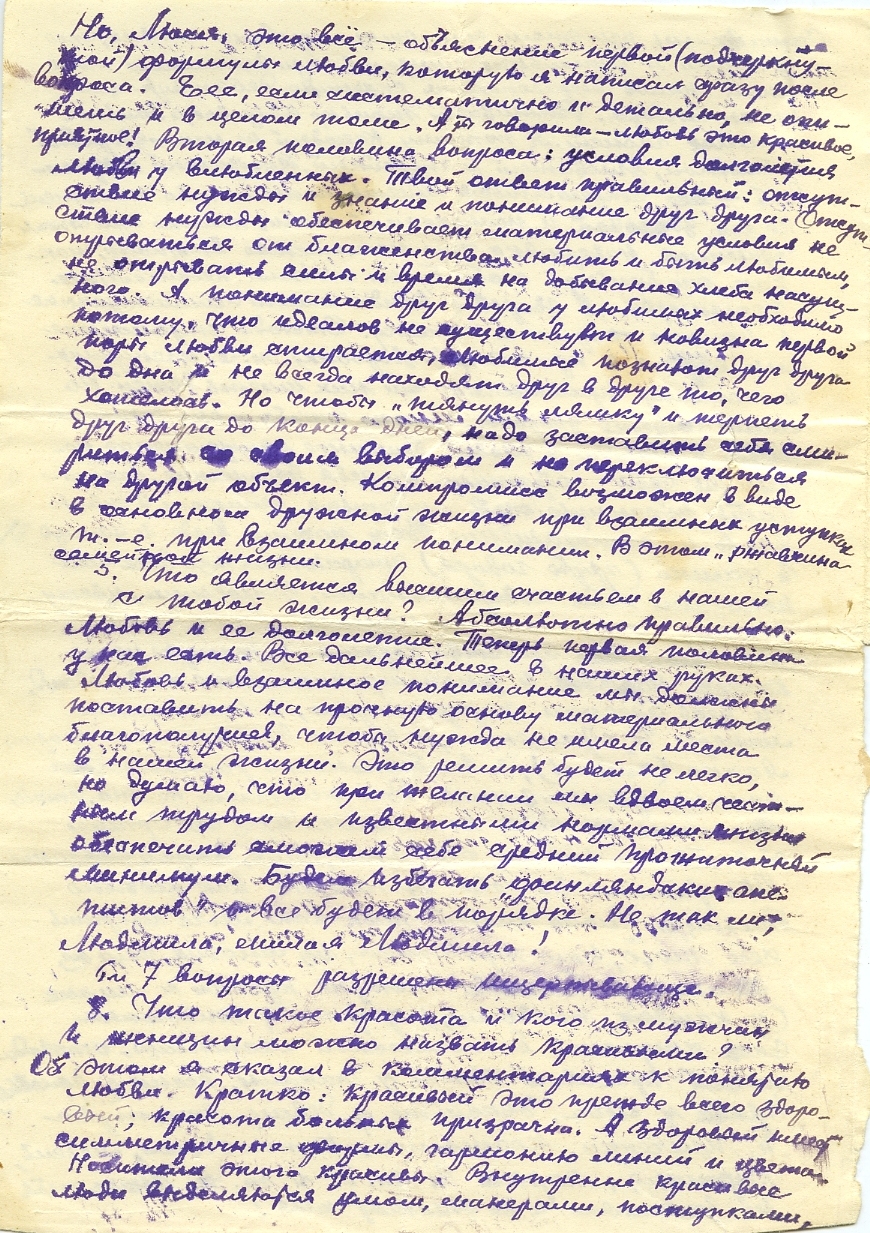 Но, Люся, это всё — объяснение первой (подчеркну-
той) формулы любви, которую я написал сразу после
вопроса. Ее, если систематично и детально, не опи-
шешь и в целом томе. А ты говорила — любовь это красивое,
приятное! Вторая половина вопроса: условия долголетия
любви у влюбленных. Твой ответ правильный: отсут-
ствие нужды и знание и понимание друг друга. Отсут-
ствие нужды обеспечивает материальные условия не
отрываться от блаженства любить и быть любимым,
не отрывать силы и время на добывание хлеба насущ-
ного. А понимание друг друга у любимых необходимо
потому, что идеалов не существует и новизна первой
поры любви стирается, любимые познают друг друга
до дна и не всегда находят друг в друге то, чего
хотелось. Но чтобы „тянуть лямку" и терпеть
друг друга до конца дней, надо заставить себя сми-
риться со своим выбором и не переключиться
на другой объект. Компромисс возможен в виде
в основном дружной жизни при взаимных уступках
т.-е. при взаимном понимании. В этом „ржавчина
семейной жизни.
5. Что является высшим счастьем в нашей
с тобой жизни? Абсолютно правильно.
Любовь и ее долголетие. Теперь первая половина
у нас есть. Все дальнейшее в наших руках.
Любовь и взаимное понимание мы должны
поставить на прочную основу материального
благополучия, чтобы нужда не имела места
в нашей жизни. Это решить будет не легко,
но думаю, что при желании мы вдвоем чест-
ным трудом и известными нормами жизни
обеспечить сможем себе средний прожиточный
минимум. Будем избегать „финляндских аппе-
титов" и все будет в порядке. Не так ли,
Людмила, милая Людмила!
7 вопросы разрешены исчерпывающе.
8. Что такое красота и кого из мужчин
и женщин можно назвать красивыми?
Об этом я сказал в комментариях к понятию
любви. Кратко: красивый это прежде всего здоро-
вый; красота больных призрачна. А здоровый имеет
симметричные формы, гармонию линий и цвета.
Носители этого красивы. Внутренне красивые
люди выделяются умом, манерами, поступками,